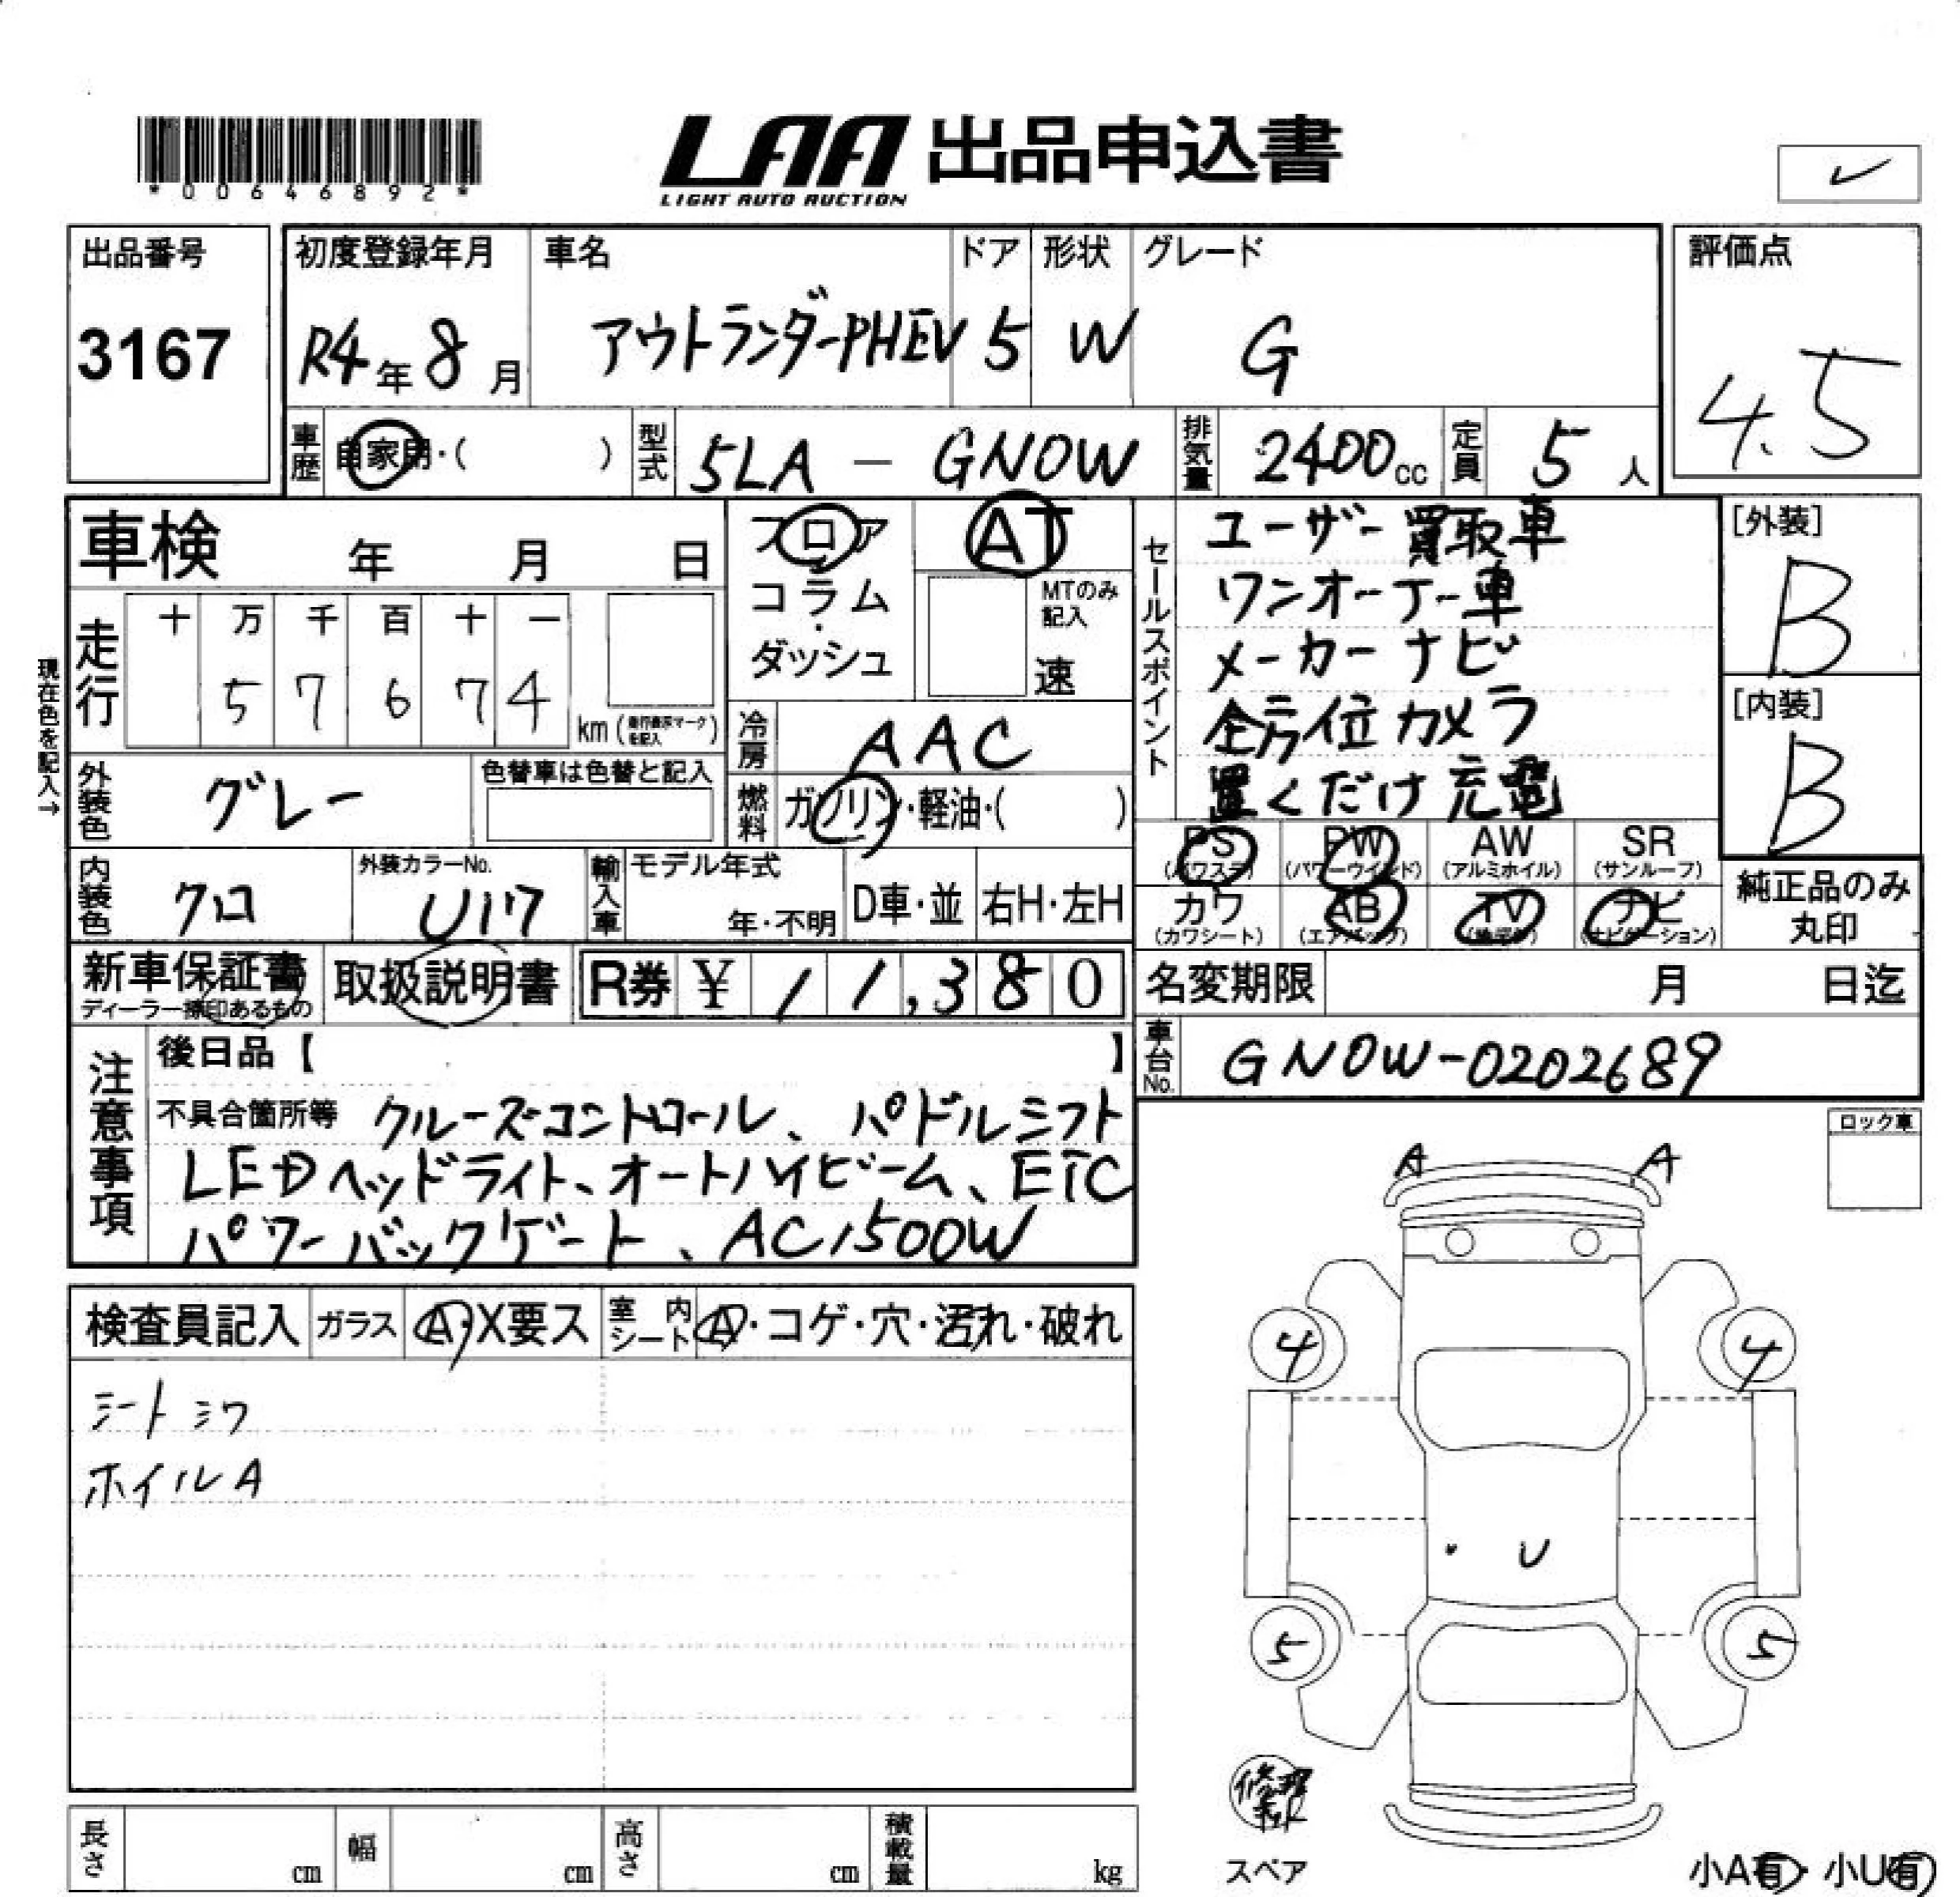 *00646892*
LAA 出品申込書
LIGHT AUTO AUCTION
出品番号
3167
初度登録年月
R4年8月
車名
アウトランダーPHEV
ドア
5
形状
W
グレード
G
評価点
4.5
車歴
自家用・( )
型式
5LA - GN0W
排気量
2400cc
定員
5人
車検 年 月 日
フロア・コラム・ダッシュ
AT
MTのみ記入
速
セールスポイント
ユーザー買取車
ワンオーナー車
メーカーナビ
全方位カメラ
置くだけ充電
[外装]
B
[内装]
B
現在色を記入→
走行
十 万 千 百 十 一
5 7 6 7 4
km
冷房
AAC
燃料
ガソリン・軽油・( )
外装色
グレー
色替車は色替と記入
PS
(パワステ)
PW
(パワーウインド)
AW
(アルミホイル)
SR
(サンルーフ)
カワ
(カワシート)
AB
(エアバッグ)
TV
ナビ
(ナビゲーション)
純正品のみ
丸印
内装色
クロ
外装カラーNo.
U17
輸入車
モデル年式
年・不明
D車・並
右H・左H
新車保証書
取扱説明書
R券 ¥ 11,380
名変期限 月 日迄
車台No.
GN0W-0202689
注意事項
後日品【 】
不具合箇所等 クルーズコントロール、パドルシフト
LEDヘッドライト、オートハイビーム、ETC
パワーバックゲート、AC1500W
ロック車
A A
検査員記入
ガラス
A・X要ス
室内シート
A・コゲ・穴・汚れ・破れ
シートシワ
ホイルA
4 4
U
5 5
修理キット
スペア
小A有・小U有
長さ cm
幅 cm
高さ cm
積載量 kg